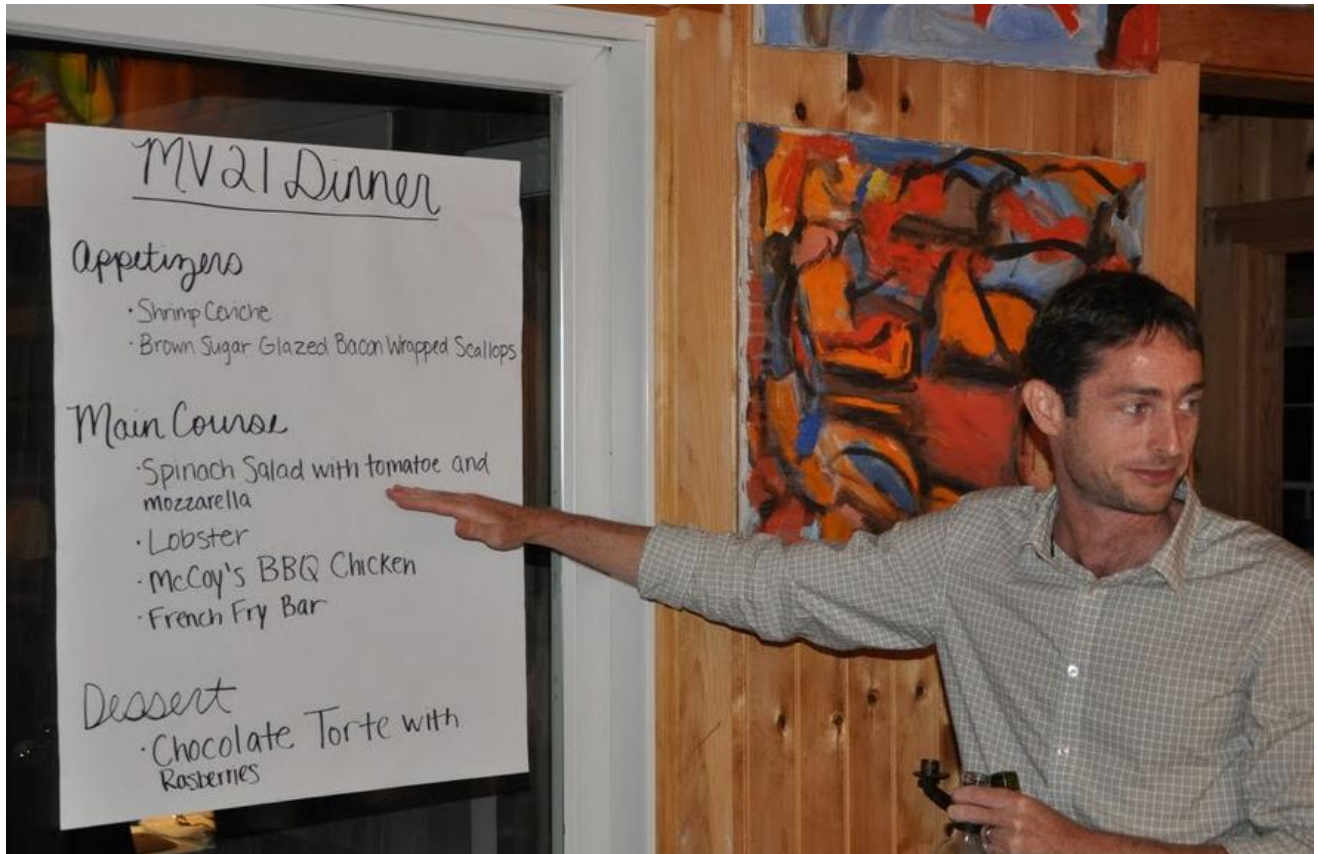 MV21 Dinner
Appetizers
· Shrimp Ceviche
· Brown Sugar Glazed Bacon Wrapped Scallops
Main Course
· Spinach Salad with tomatoe and
mozzarella
· Lobster
· McCoy's BBQ Chicken
· French Fry Bar
Dessert
· Chocolate Torte with
Rasberries